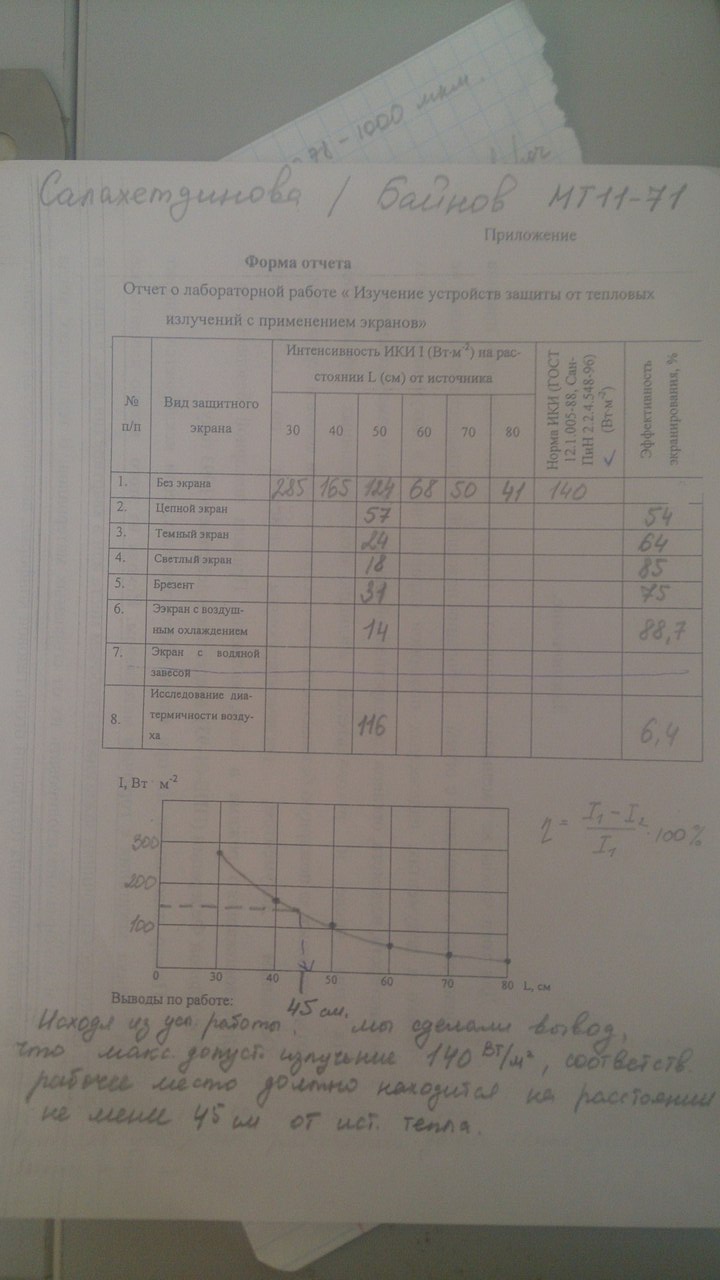 78 - 1000 мкм.
Салахетдинова / Байнов МТ11-71
Приложение
Форма отчета
Отчет о лабораторной работе « Изучение устройств защиты от тепловых
излучений с применением экранов»
№ п/п
Вид защитного экрана
Интенсивность ИКИ I (Вт·м-2) на рас-
стоянии L (см) от источника
30 40 50 60 70 80
Норма ИКИ (ГОСТ
12.1.005-88, Сан-
ПиН 2.2.4.548-96)
(Вт·м-2)
Эффективность
экранирования, %
1. Без экрана 285 165 124 68 50 41 140
2. Цепной экран 57 54
3. Темный экран 24 64
4. Светлый экран 18 85
5. Брезент 31 75
6. Ээкран с воздуш-
ным охлаждением 14 88,7
7. Экран с водяной
завесой
8. Исследование диа-
термичности возду-
ха 116 6,4
I, Вт · м-2
η = I₁ - I₂ / I₁ · 100%
300
200
100
0 30 40 50 60 70 80 L, см
45 см.
Выводы по работе:
Исходя из усл. работы, мы сделали вывод,
что макс. допуст. излучение 140 Вт/м², соответств.
рабочее место должно находится на расстоянии
не мене 45 см от ист. тепла.